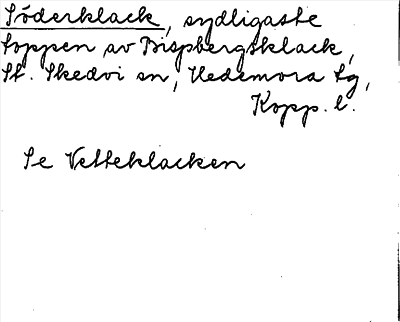 Söderklack, sydligaste
toppen av Bispbergsklack,
St. Skedvi sn, Hedemora tg,
Kopp. l.
Se Vetteklacken